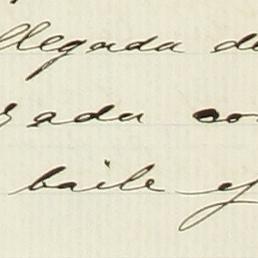 llegada de
sada con
baile y